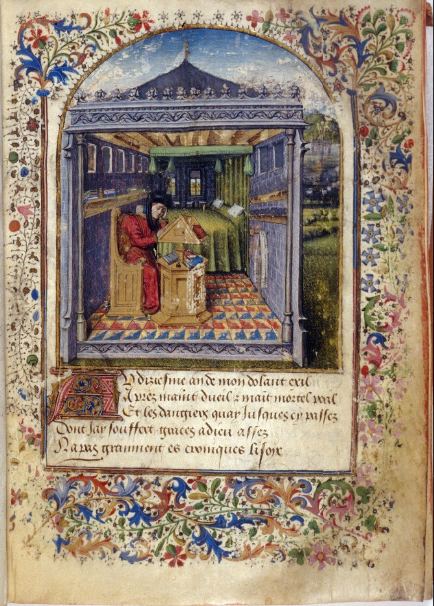 Au diziesme an de mon dolant exil
Aprez maint dueil & maint mortel peril
Et les dangiers quay Jusques cy passez
Dont Jay souffert graces adieu assez
Na pas granment es croniques lisoye